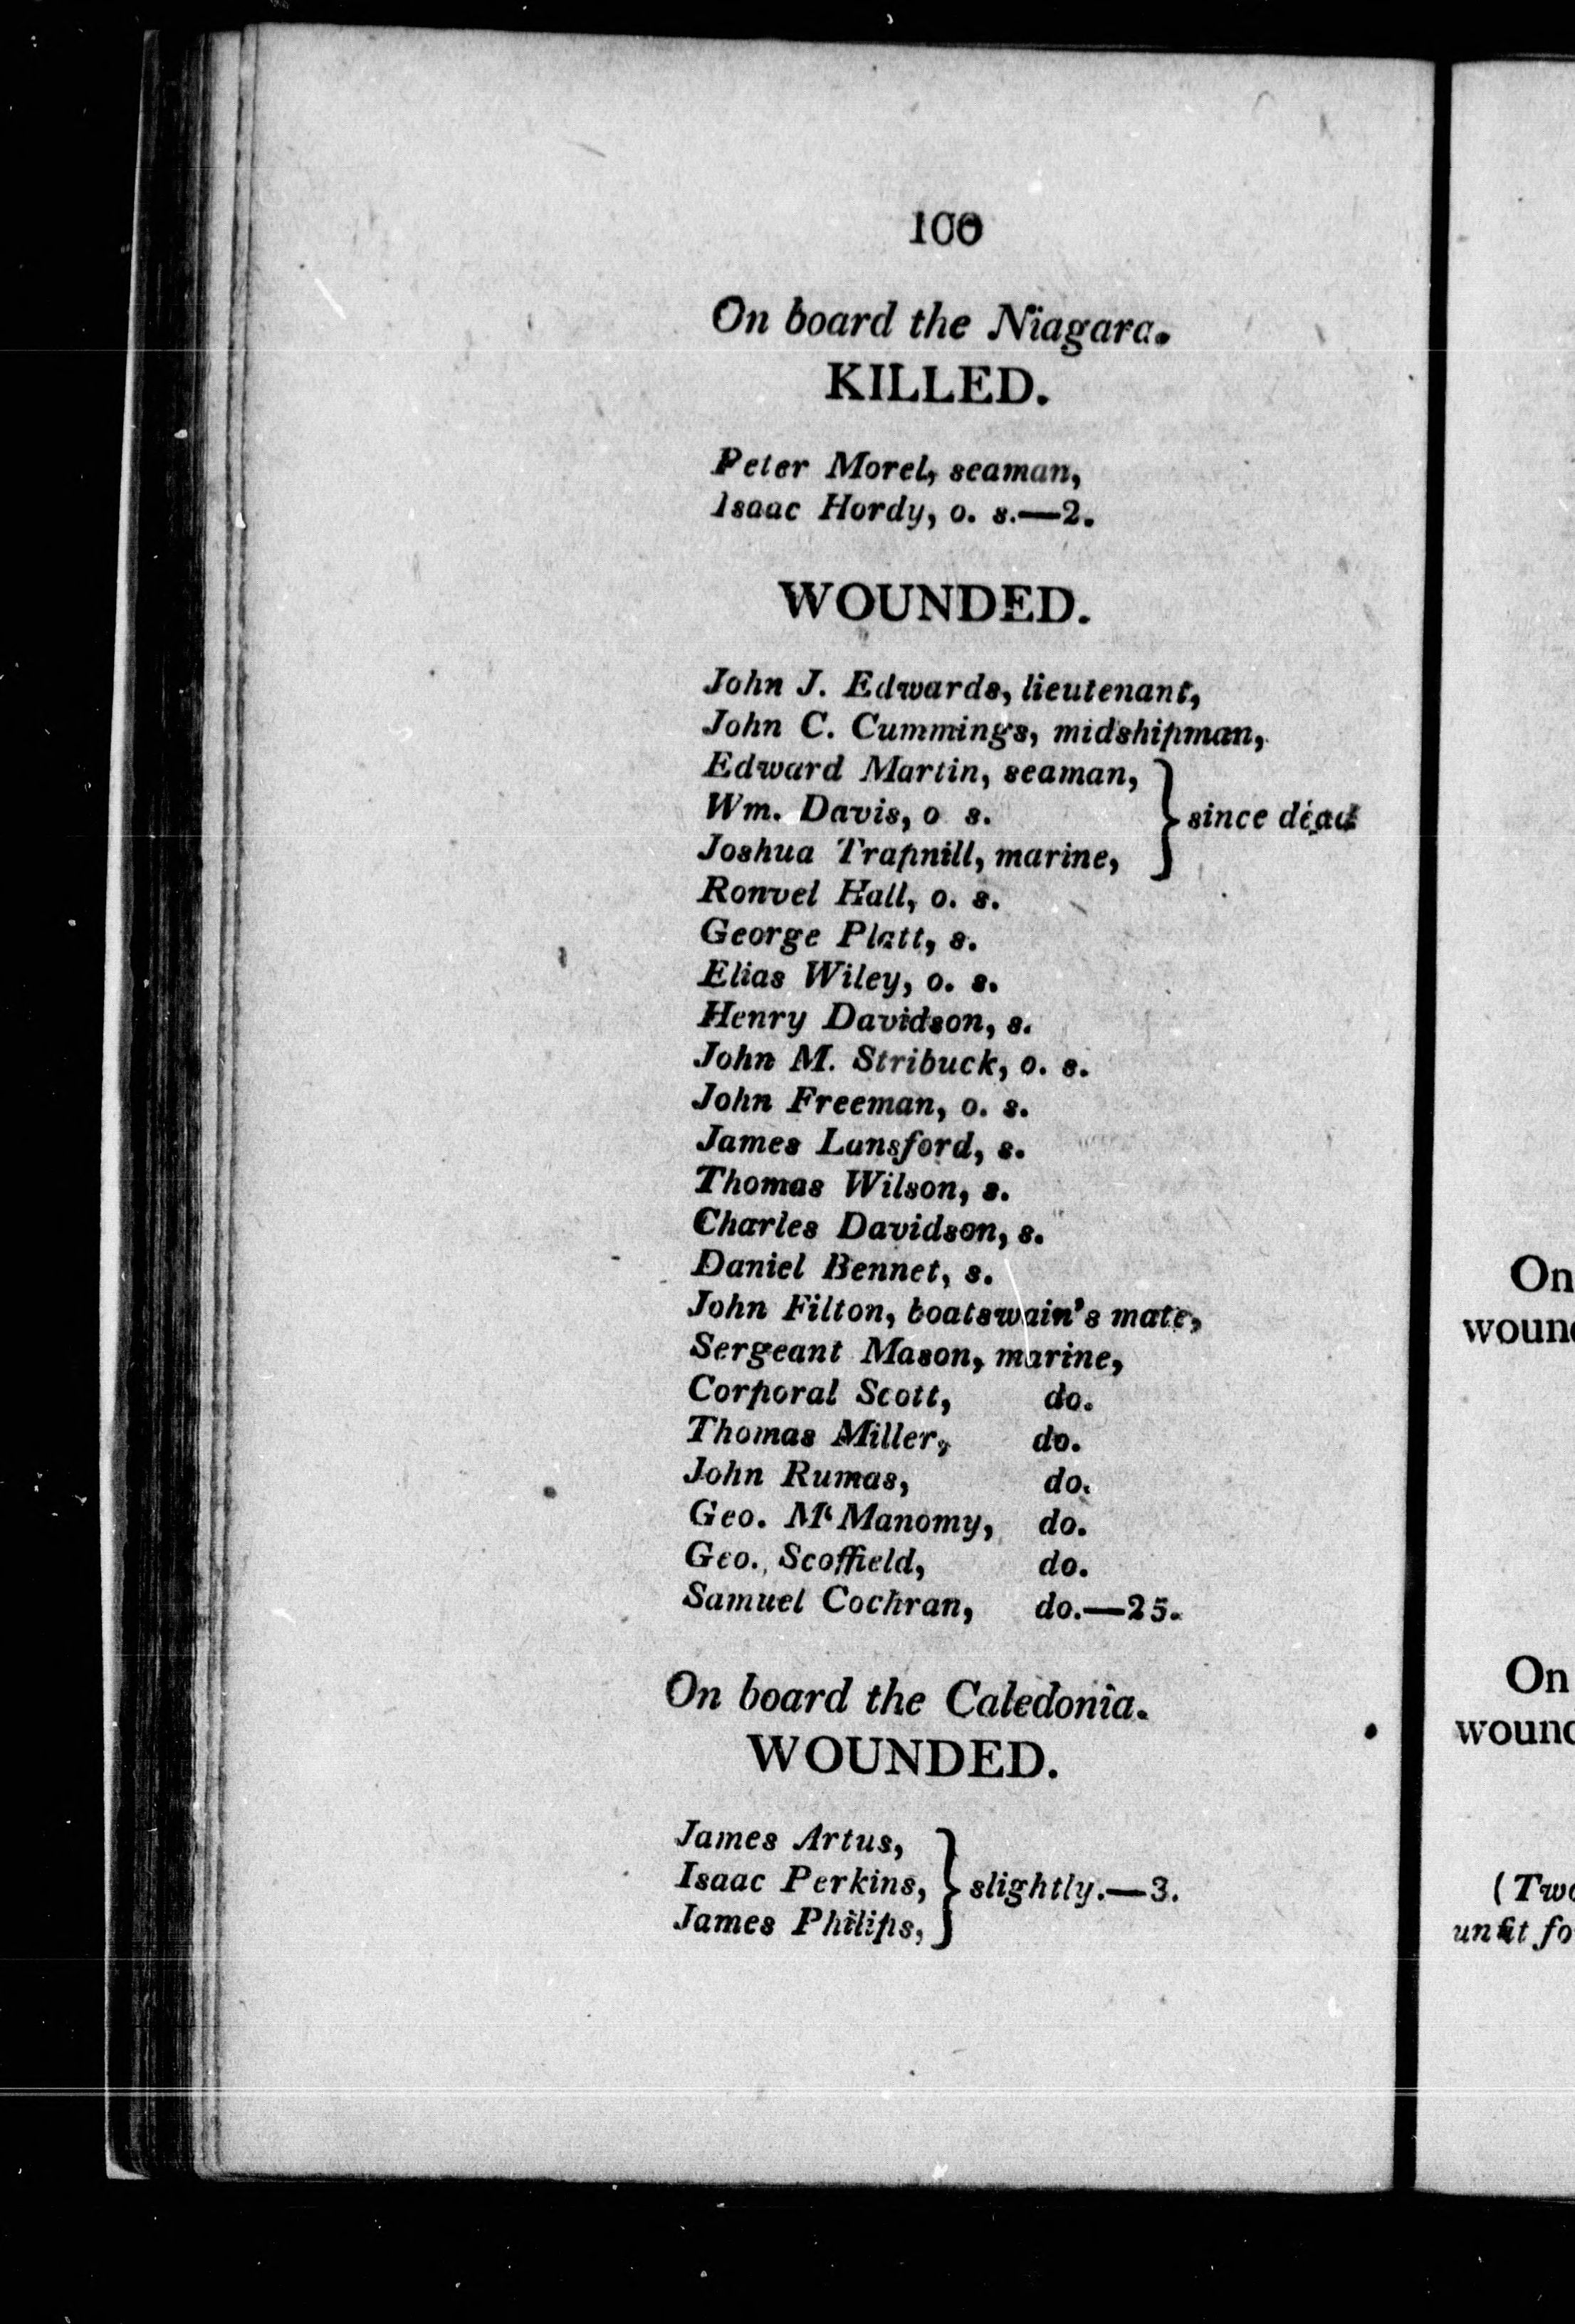 100
On board the Niagara.
KILLED.
Peter Morel, seaman,
Isaac Hordy, o. s.—2.
WOUNDED.
John J. Edwards, lieutenant,
John C. Cummings, midshipman,
Edward Martin, seaman,
Wm. Davis, o s. } since dead
Joshua Trapnill, marine,
Ronvel Hall, o. s.
George Platt, s.
Elias Wiley, o. s.
Henry Davidson, s.
John M. Stribuck, o. s.
John Freeman, o. s.
James Lansford, s.
Thomas Wilson, s.
Charles Davidson, s.
Daniel Bennet, s.
John Filton, boatswain's mate,
Sergeant Mason, marine,
Corporal Scott, do.
Thomas Miller, do.
John Rumas, do.
Geo. McManomy, do.
Geo. Scoffield, do.
Samuel Cochran, do.—25.
On board the Caledonia.
WOUNDED.
James Artus,
Isaac Perkins, } slightly.—3.
James Philips,
On
On
(
fo